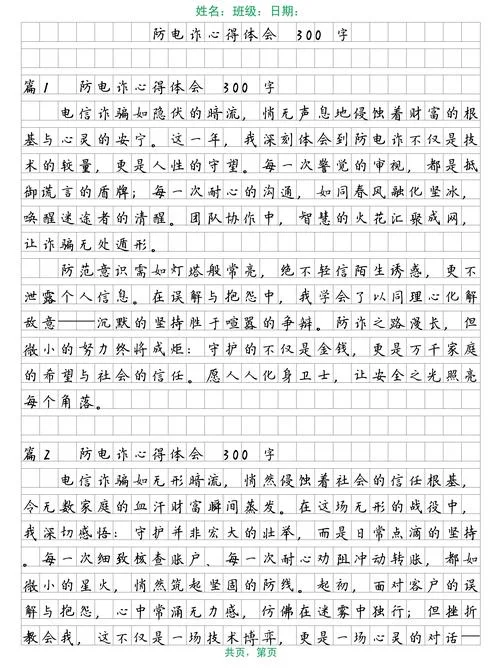 姓名：班级：日期：
防电诈心得体会 300 字
篇1 防电诈心得体会 300 字
电信诈骗如隐伏的暗流，悄无声息地侵蚀着财富的根
基与心灵的安宁。这一年，我深刻体会到防电诈不仅是技
术的较量，更是人性的守望。每一次警觉的审视，都是抵
御谎言的盾牌；每一次耐心的沟通，如同春风融化坚冰，
唤醒迷途者的清醒。团队协作中，智慧的火花汇聚成网，
让诈骗无处遁形。
防范意识需如灯塔般常亮，绝不轻信陌生诱惑，更不
泄露个人信息。在误解与抱怨中，我学会了以同理心化解
敌意——沉默的坚持胜于喧嚣的争辩。防诈之路漫长，但
微小的努力终将成炬：守护的不仅是金钱，更是万千家庭
的希望与社会的信任。愿人人化身卫士，让安全之光照亮
每个角落。
篇2 防电诈心得体会 300 字
电信诈骗如无形暗流，悄然侵蚀着社会的信任根基，
令无数家庭的血汗财富瞬间蒸发。在这场无形的战役中，
我深切感悟：守护并非宏大的壮举，而是日常点滴的坚持
。每一次细致核查账户、每一次耐心劝阻冲动转账，都如
微小的星火，悄然筑起坚固的防线。起初，面对客户的误
解与抱怨，心中常涌无力感，仿佛在迷雾中独行；但挫折
教会我，这不仅是一场技术博弈，更是一场心灵的对话—
共页，第页